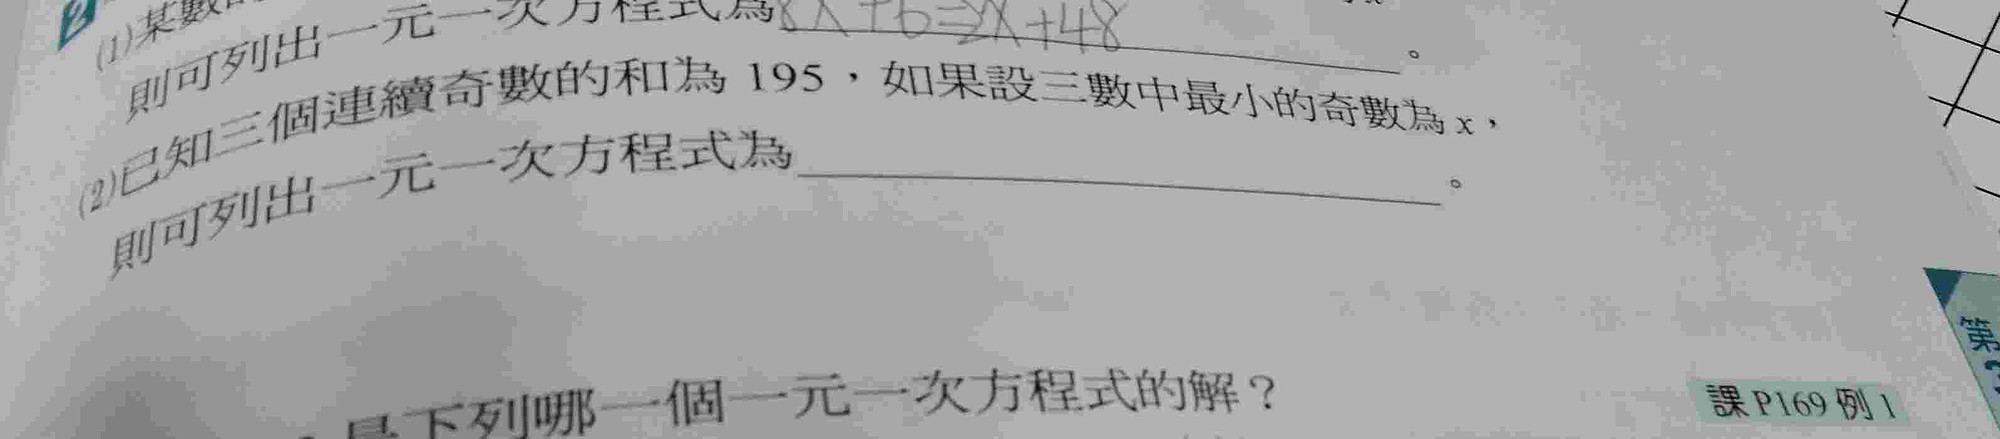 2
(1)某數
則可列出一元一次方程式為8x+6=2x+48。
(2)已知三個連續奇數的和為 195，如果設三數中最小的奇數為 x，
則可列出一元一次方程式為________。
是下列哪一個一元一次方程式的解？
課P169例1
第